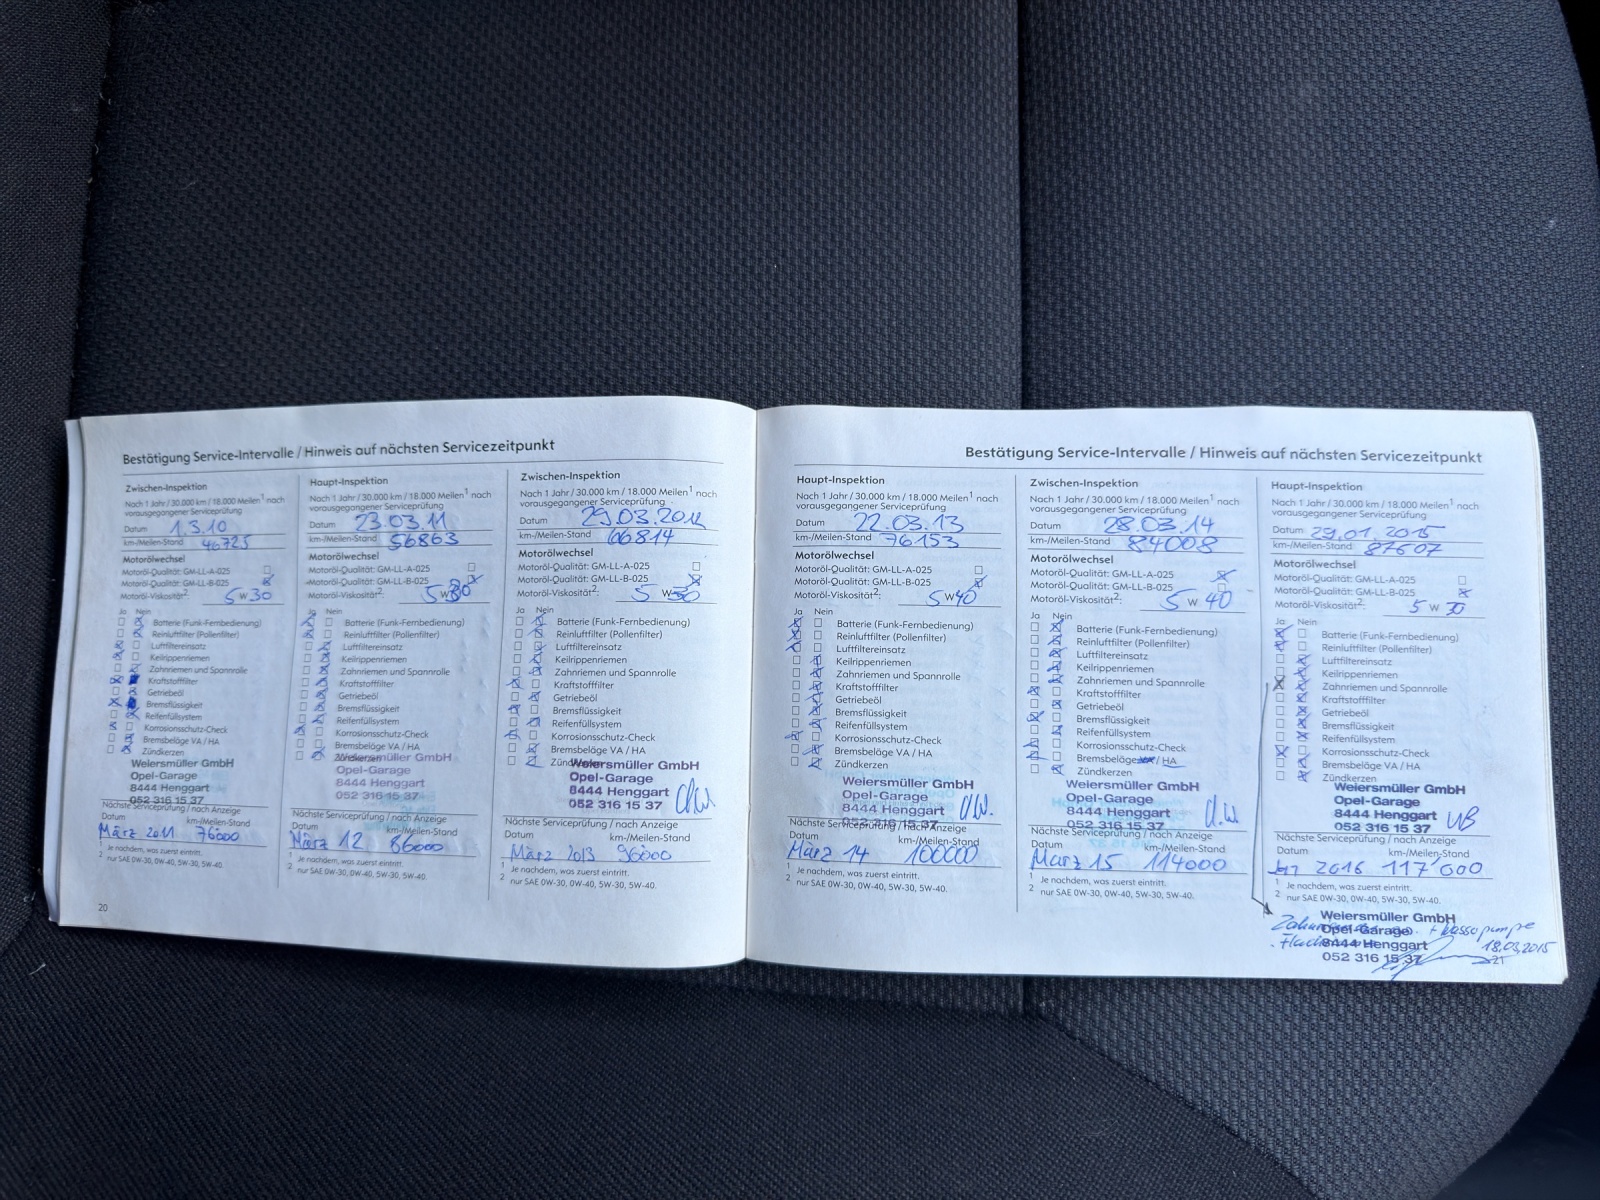 Bestätigung Service-Intervalle / Hinweis auf nächsten Servicezeitpunkt
Zwischen-Inspektion
Nach 1 Jahr / 30.000 km / 18.000 Meilen¹ nach
vorausgegangener Serviceprüfung
Datum 1.3.10
km-/Meilen-Stand 46725
Motorölwechsel
Motoröl-Qualität: GM-LL-A-025
Motoröl-Qualität: GM-LL-B-025
Motoröl-Viskosität²: 5 W 30
Ja Nein
Batterie (Funk-Fernbedienung)
Reinluftfilter (Pollenfilter)
Luftfiltereinsatz
Keilrippenriemen
Zahnriemen und Spannrolle
Kraftstofffilter
Getriebeöl
Bremsflüssigkeit
Reifenfüllsystem
Korrosionsschutz-Check
Bremsbeläge VA / HA
Zündkerzen
Weiersmüller GmbH
Opel-Garage
8444 Henggart
052 316 15 37
Nächste Serviceprüfung / nach Anzeige
Datum km-/Meilen-Stand
März 2011 76000
¹ Je nachdem, was zuerst eintritt.
² nur SAE 0W-30, 0W-40, 5W-30, 5W-40.
20
Haupt-Inspektion
Nach 1 Jahr / 30.000 km / 18.000 Meilen¹ nach
vorausgegangener Serviceprüfung
Datum 23.03.11
km-/Meilen-Stand 56863
Motorölwechsel
Motoröl-Qualität: GM-LL-A-025
Motoröl-Qualität: GM-LL-B-025
Motoröl-Viskosität²: 5 W 30
Ja Nein
Batterie (Funk-Fernbedienung)
Reinluftfilter (Pollenfilter)
Luftfiltereinsatz
Keilrippenriemen
Zahnriemen und Spannrolle
Kraftstofffilter
Getriebeöl
Bremsflüssigkeit
Reifenfüllsystem
Korrosionsschutz-Check
Bremsbeläge VA / HA
Zündkerzen
Weiersmüller GmbH
Opel-Garage
8444 Henggart
052 316 15 37
Nächste Serviceprüfung / nach Anzeige
Datum km-/Meilen-Stand
März 12 86000
¹ Je nachdem, was zuerst eintritt.
² nur SAE 0W-30, 0W-40, 5W-30, 5W-40.
Zwischen-Inspektion
Nach 1 Jahr / 30.000 km / 18.000 Meilen¹ nach
vorausgegangener Serviceprüfung
Datum 29.03.2012
km-/Meilen-Stand 66814
Motorölwechsel
Motoröl-Qualität: GM-LL-A-025
Motoröl-Qualität: GM-LL-B-025
Motoröl-Viskosität²: 5 W 30
Ja Nein
Batterie (Funk-Fernbedienung)
Reinluftfilter (Pollenfilter)
Luftfiltereinsatz
Keilrippenriemen
Zahnriemen und Spannrolle
Kraftstofffilter
Getriebeöl
Bremsflüssigkeit
Reifenfüllsystem
Korrosionsschutz-Check
Bremsbeläge VA / HA
Zündkerzen
Weiersmüller GmbH
Opel-Garage
8444 Henggart
052 316 15 37
Nächste Serviceprüfung / nach Anzeige
Datum km-/Meilen-Stand
März 2013 96000
¹ Je nachdem, was zuerst eintritt.
² nur SAE 0W-30, 0W-40, 5W-30, 5W-40.
Bestätigung Service-Intervalle / Hinweis auf nächsten Servicezeitpunkt
Haupt-Inspektion
Nach 1 Jahr / 30.000 km / 18.000 Meilen¹ nach
vorausgegangener Serviceprüfung
Datum 22.03.13
km-/Meilen-Stand 76153
Motorölwechsel
Motoröl-Qualität: GM-LL-A-025
Motoröl-Qualität: GM-LL-B-025
Motoröl-Viskosität²: 5 W 40
Ja Nein
Batterie (Funk-Fernbedienung)
Reinluftfilter (Pollenfilter)
Luftfiltereinsatz
Keilrippenriemen
Zahnriemen und Spannrolle
Kraftstofffilter
Getriebeöl
Bremsflüssigkeit
Reifenfüllsystem
Korrosionsschutz-Check
Bremsbeläge VA / HA
Zündkerzen
Weiersmüller GmbH
Opel-Garage
8444 Henggart
052 316 15 37
Nächste Serviceprüfung / nach Anzeige
Datum km-/Meilen-Stand
März 14 100000
¹ Je nachdem, was zuerst eintritt.
² nur SAE 0W-30, 0W-40, 5W-30, 5W-40.
Zwischen-Inspektion
Nach 1 Jahr / 30.000 km / 18.000 Meilen¹ nach
vorausgegangener Serviceprüfung
Datum 28.03.14
km-/Meilen-Stand 84008
Motorölwechsel
Motoröl-Qualität: GM-LL-A-025
Motoröl-Qualität: GM-LL-B-025
Motoröl-Viskosität²: 5 W 40
Ja Nein
Batterie (Funk-Fernbedienung)
Reinluftfilter (Pollenfilter)
Luftfiltereinsatz
Keilrippenriemen
Zahnriemen und Spannrolle
Kraftstofffilter
Getriebeöl
Bremsflüssigkeit
Reifenfüllsystem
Korrosionsschutz-Check
Bremsbeläge / HA
Zündkerzen
Weiersmüller GmbH
Opel-Garage
8444 Henggart
052 316 15 37
Nächste Serviceprüfung / nach Anzeige
Datum km-/Meilen-Stand
März 15 114000
¹ Je nachdem, was zuerst eintritt.
² nur SAE 0W-30, 0W-40, 5W-30, 5W-40.
Haupt-Inspektion
Nach 1 Jahr / 30.000 km / 18.000 Meilen¹ nach
vorausgegangener Serviceprüfung
Datum 29.01.2015
km-/Meilen-Stand 87607
Motorölwechsel
Motoröl-Qualität: GM-LL-A-025
Motoröl-Qualität: GM-LL-B-025
Motoröl-Viskosität²: 5 W 30
Ja Nein
Batterie (Funk-Fernbedienung)
Reinluftfilter (Pollenfilter)
Luftfiltereinsatz
Keilrippenriemen
Zahnriemen und Spannrolle
Kraftstofffilter
Getriebeöl
Bremsflüssigkeit
Reifenfüllsystem
Korrosionsschutz-Check
Bremsbeläge VA / HA
Zündkerzen
Weiersmüller GmbH
Opel-Garage
8444 Henggart
052 316 15 37
Nächste Serviceprüfung / nach Anzeige
Datum km-/Meilen-Stand
2016 117'600
¹ Je nachdem, was zuerst eintritt.
² nur SAE 0W-30, 0W-40, 5W-30, 5W-40.
Weiersmüller GmbH
Opel-Garage
8444 Henggart
052 316 15 37
18.03.2015
21